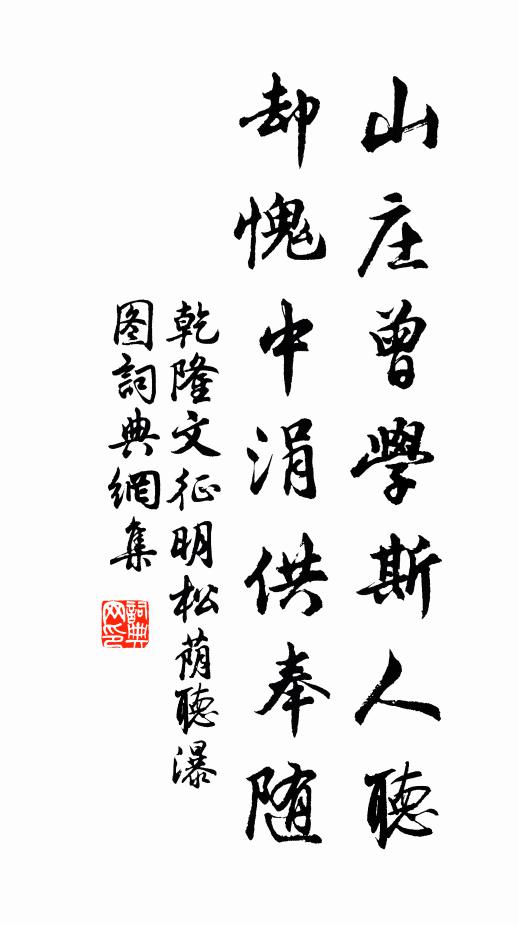 山庄曾學斯人聽
却愧中涓供奉随
乾隆文征明松蔭聽瀑
图詞典網集
詞典网印